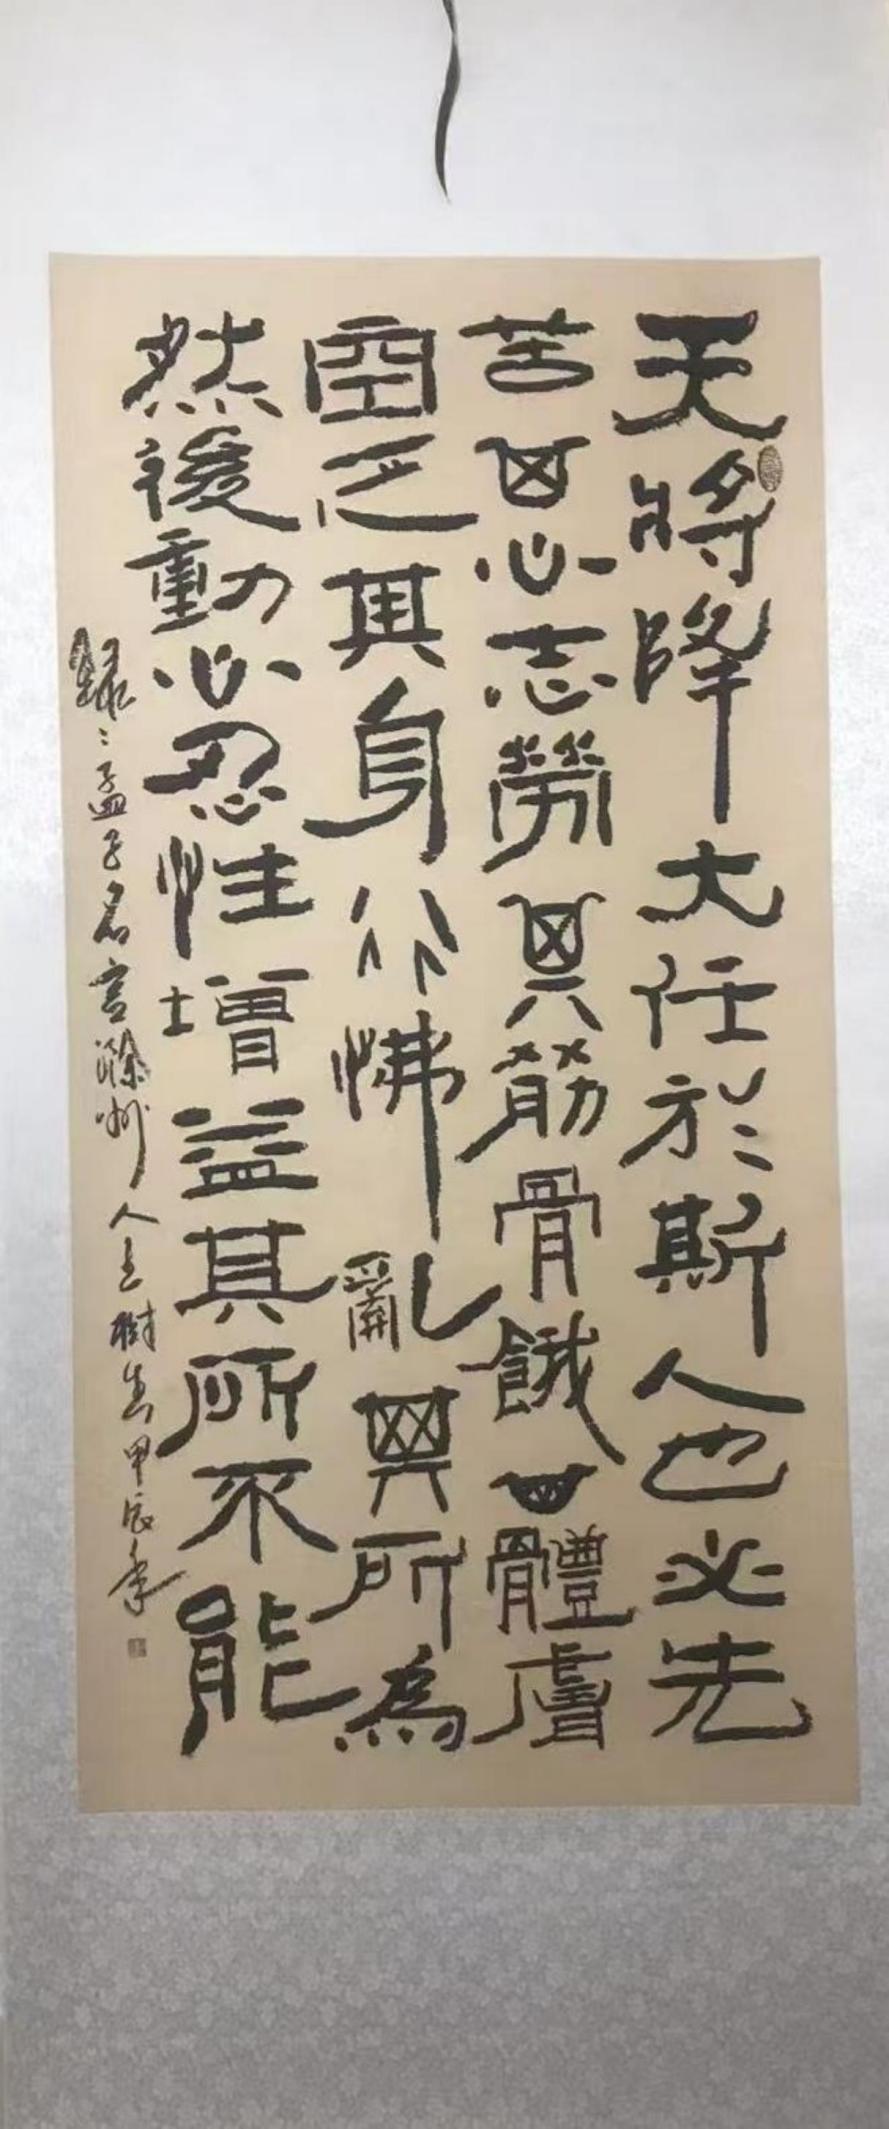 天將降大任於斯人也必先
苦其心志勞其筋骨餓其體膚
空乏其身行怫亂其所為
然後動心忍性增益其所不能
錄孟子名言滁州人王樹生甲辰年